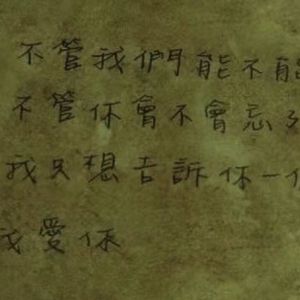 不管我們能不能
不管你會不會忘
我只想告訴你一
我愛你